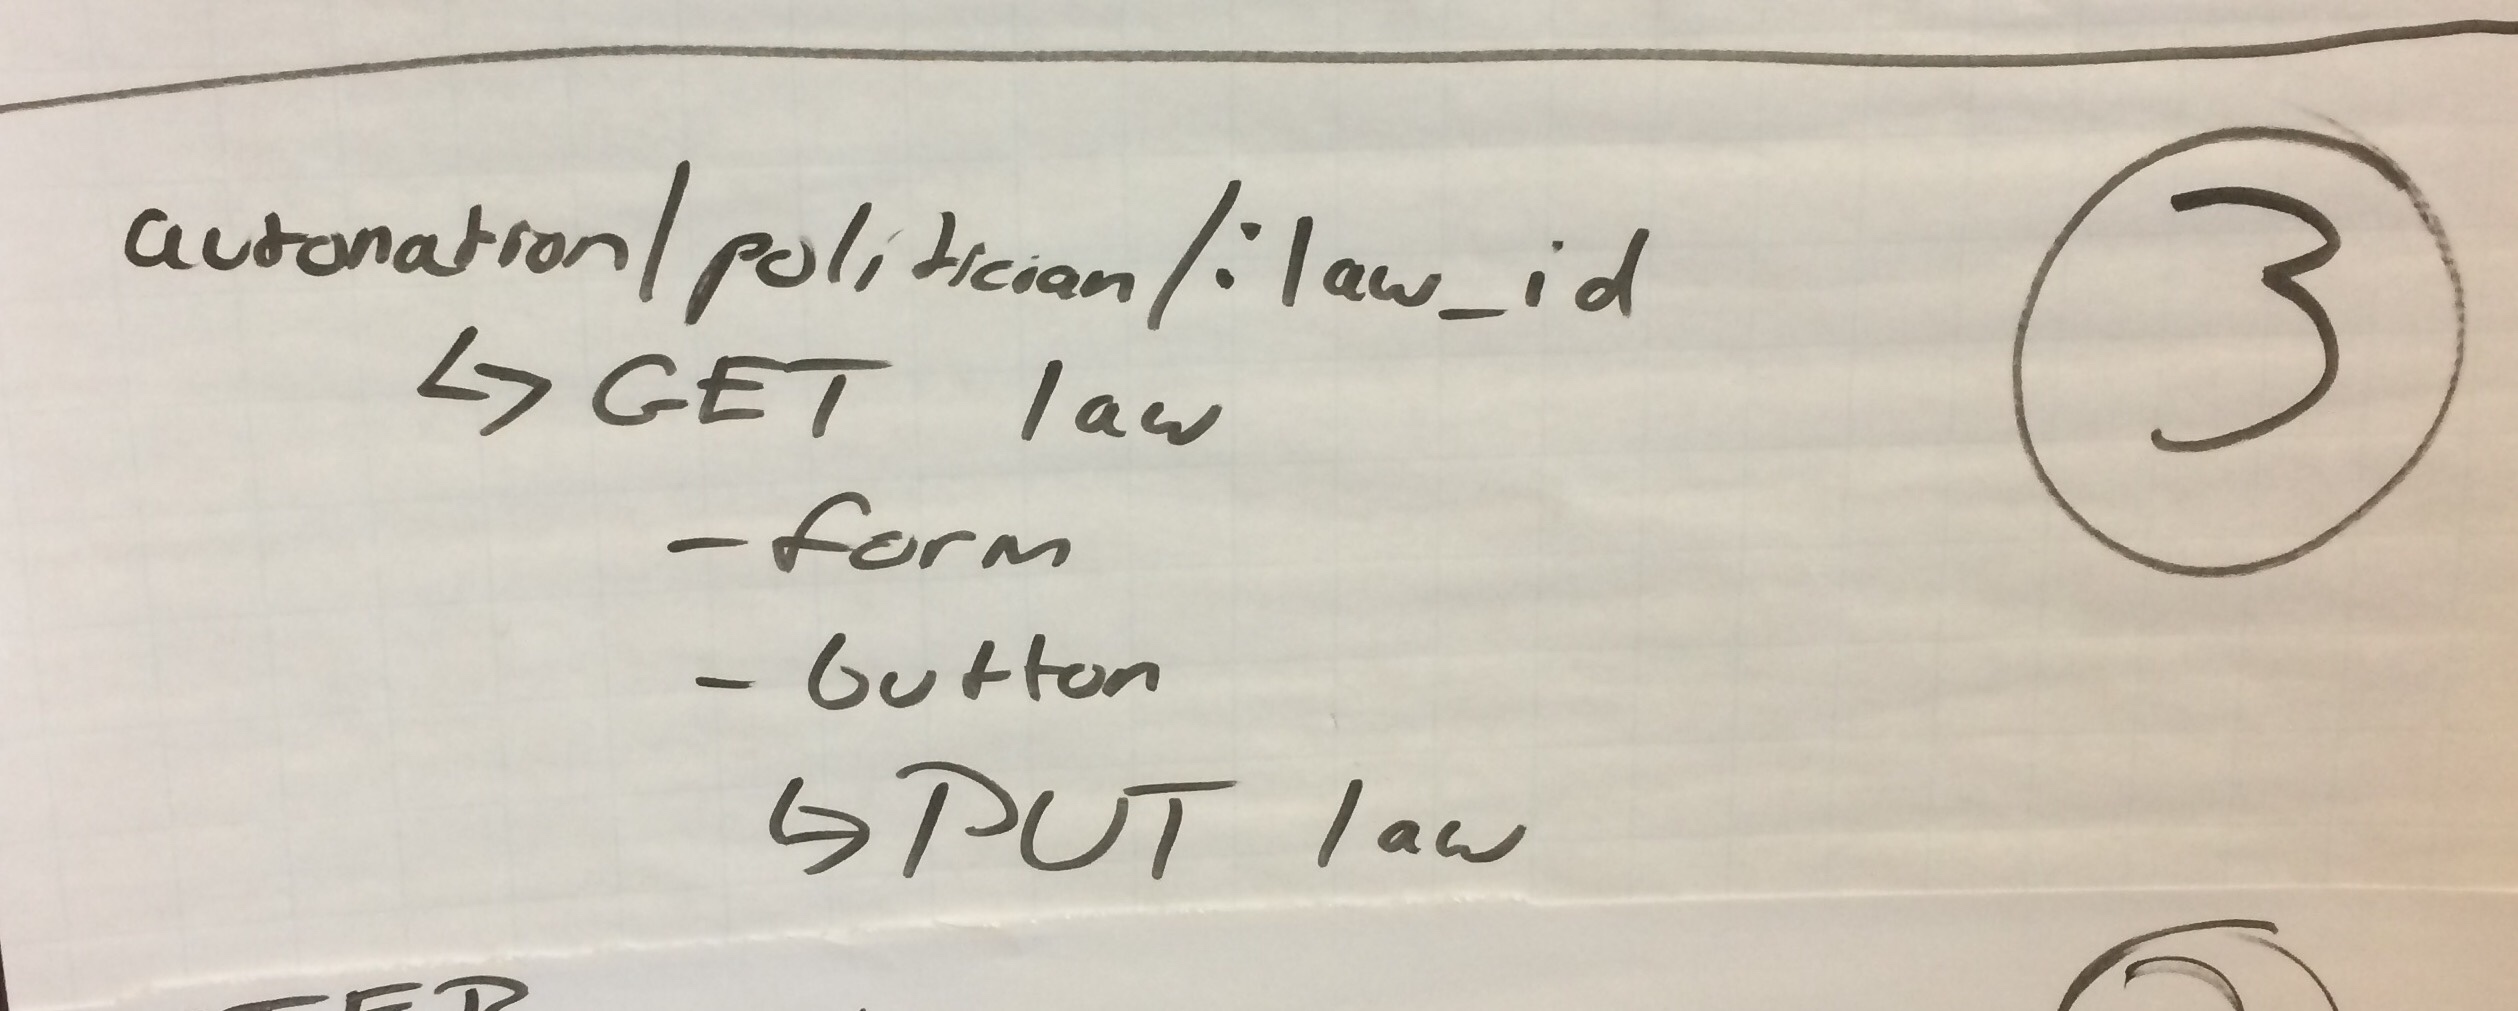 automation/politician/:law_id
3
↳ GET law
- form
- button
↳ PUT law